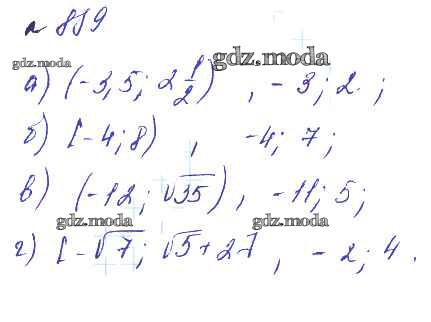 n 859
gdz.moda gdz.moda
а) (-3,5; 2 1/2), -3; 2.;
б) [-4; 8), -4; 7;
в) (-12; √35), -11; 5;
gdz.moda gdz.moda
г) [-√7; √5+2], -2; 4.